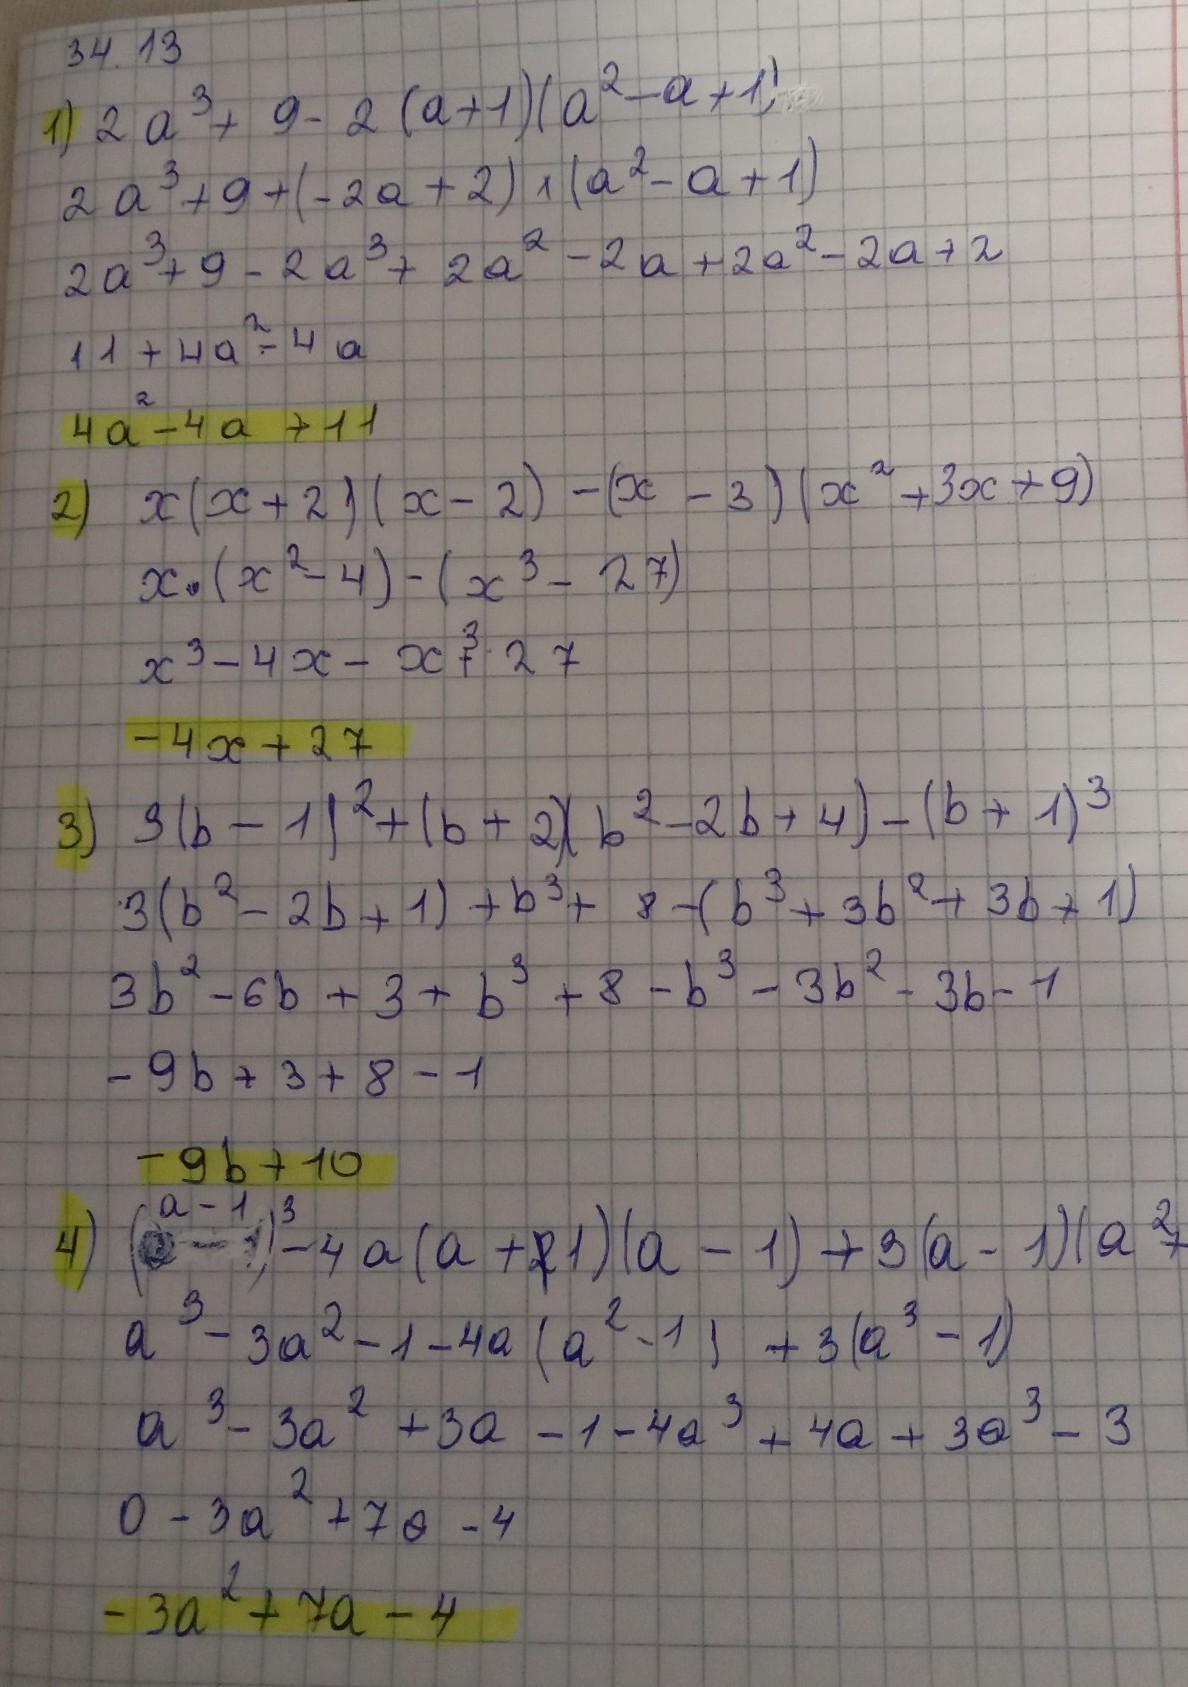 34.13
1) 2a³ + 9 - 2(a+1)(a² - a + 1)
2a³ + 9 + (-2a + 2) · (a² - a + 1)
2a³ + 9 - 2a³ + 2a² - 2a + 2a² - 2a + 2
11 + 4a² - 4a
4a² - 4a + 11
2) x(x + 2)(x - 2) - (x - 3)(x² + 3x + 9)
x·(x² - 4) - (x³ - 27)
x³ - 4x - x³ + 27
-4x + 27
3) 3(b - 1)² + (b + 2)(b² - 2b + 4) - (b + 1)³
3(b² - 2b + 1) + b³ + 8 - (b³ + 3b² + 3b + 1)
3b² - 6b + 3 + b³ + 8 - b³ - 3b² - 3b - 1
-9b + 3 + 8 - 1
-9b + 10
4) (a - 1)³ - 4a(a + 1)(a - 1) + 3(a - 1)(a² +
a³ - 3a² - 1 - 4a(a² - 1) + 3(a³ - 1)
a³ - 3a² + 3a - 1 - 4a³ + 4a + 3a³ - 3
0 - 3a² + 7a - 4
-3a² + 7a - 4